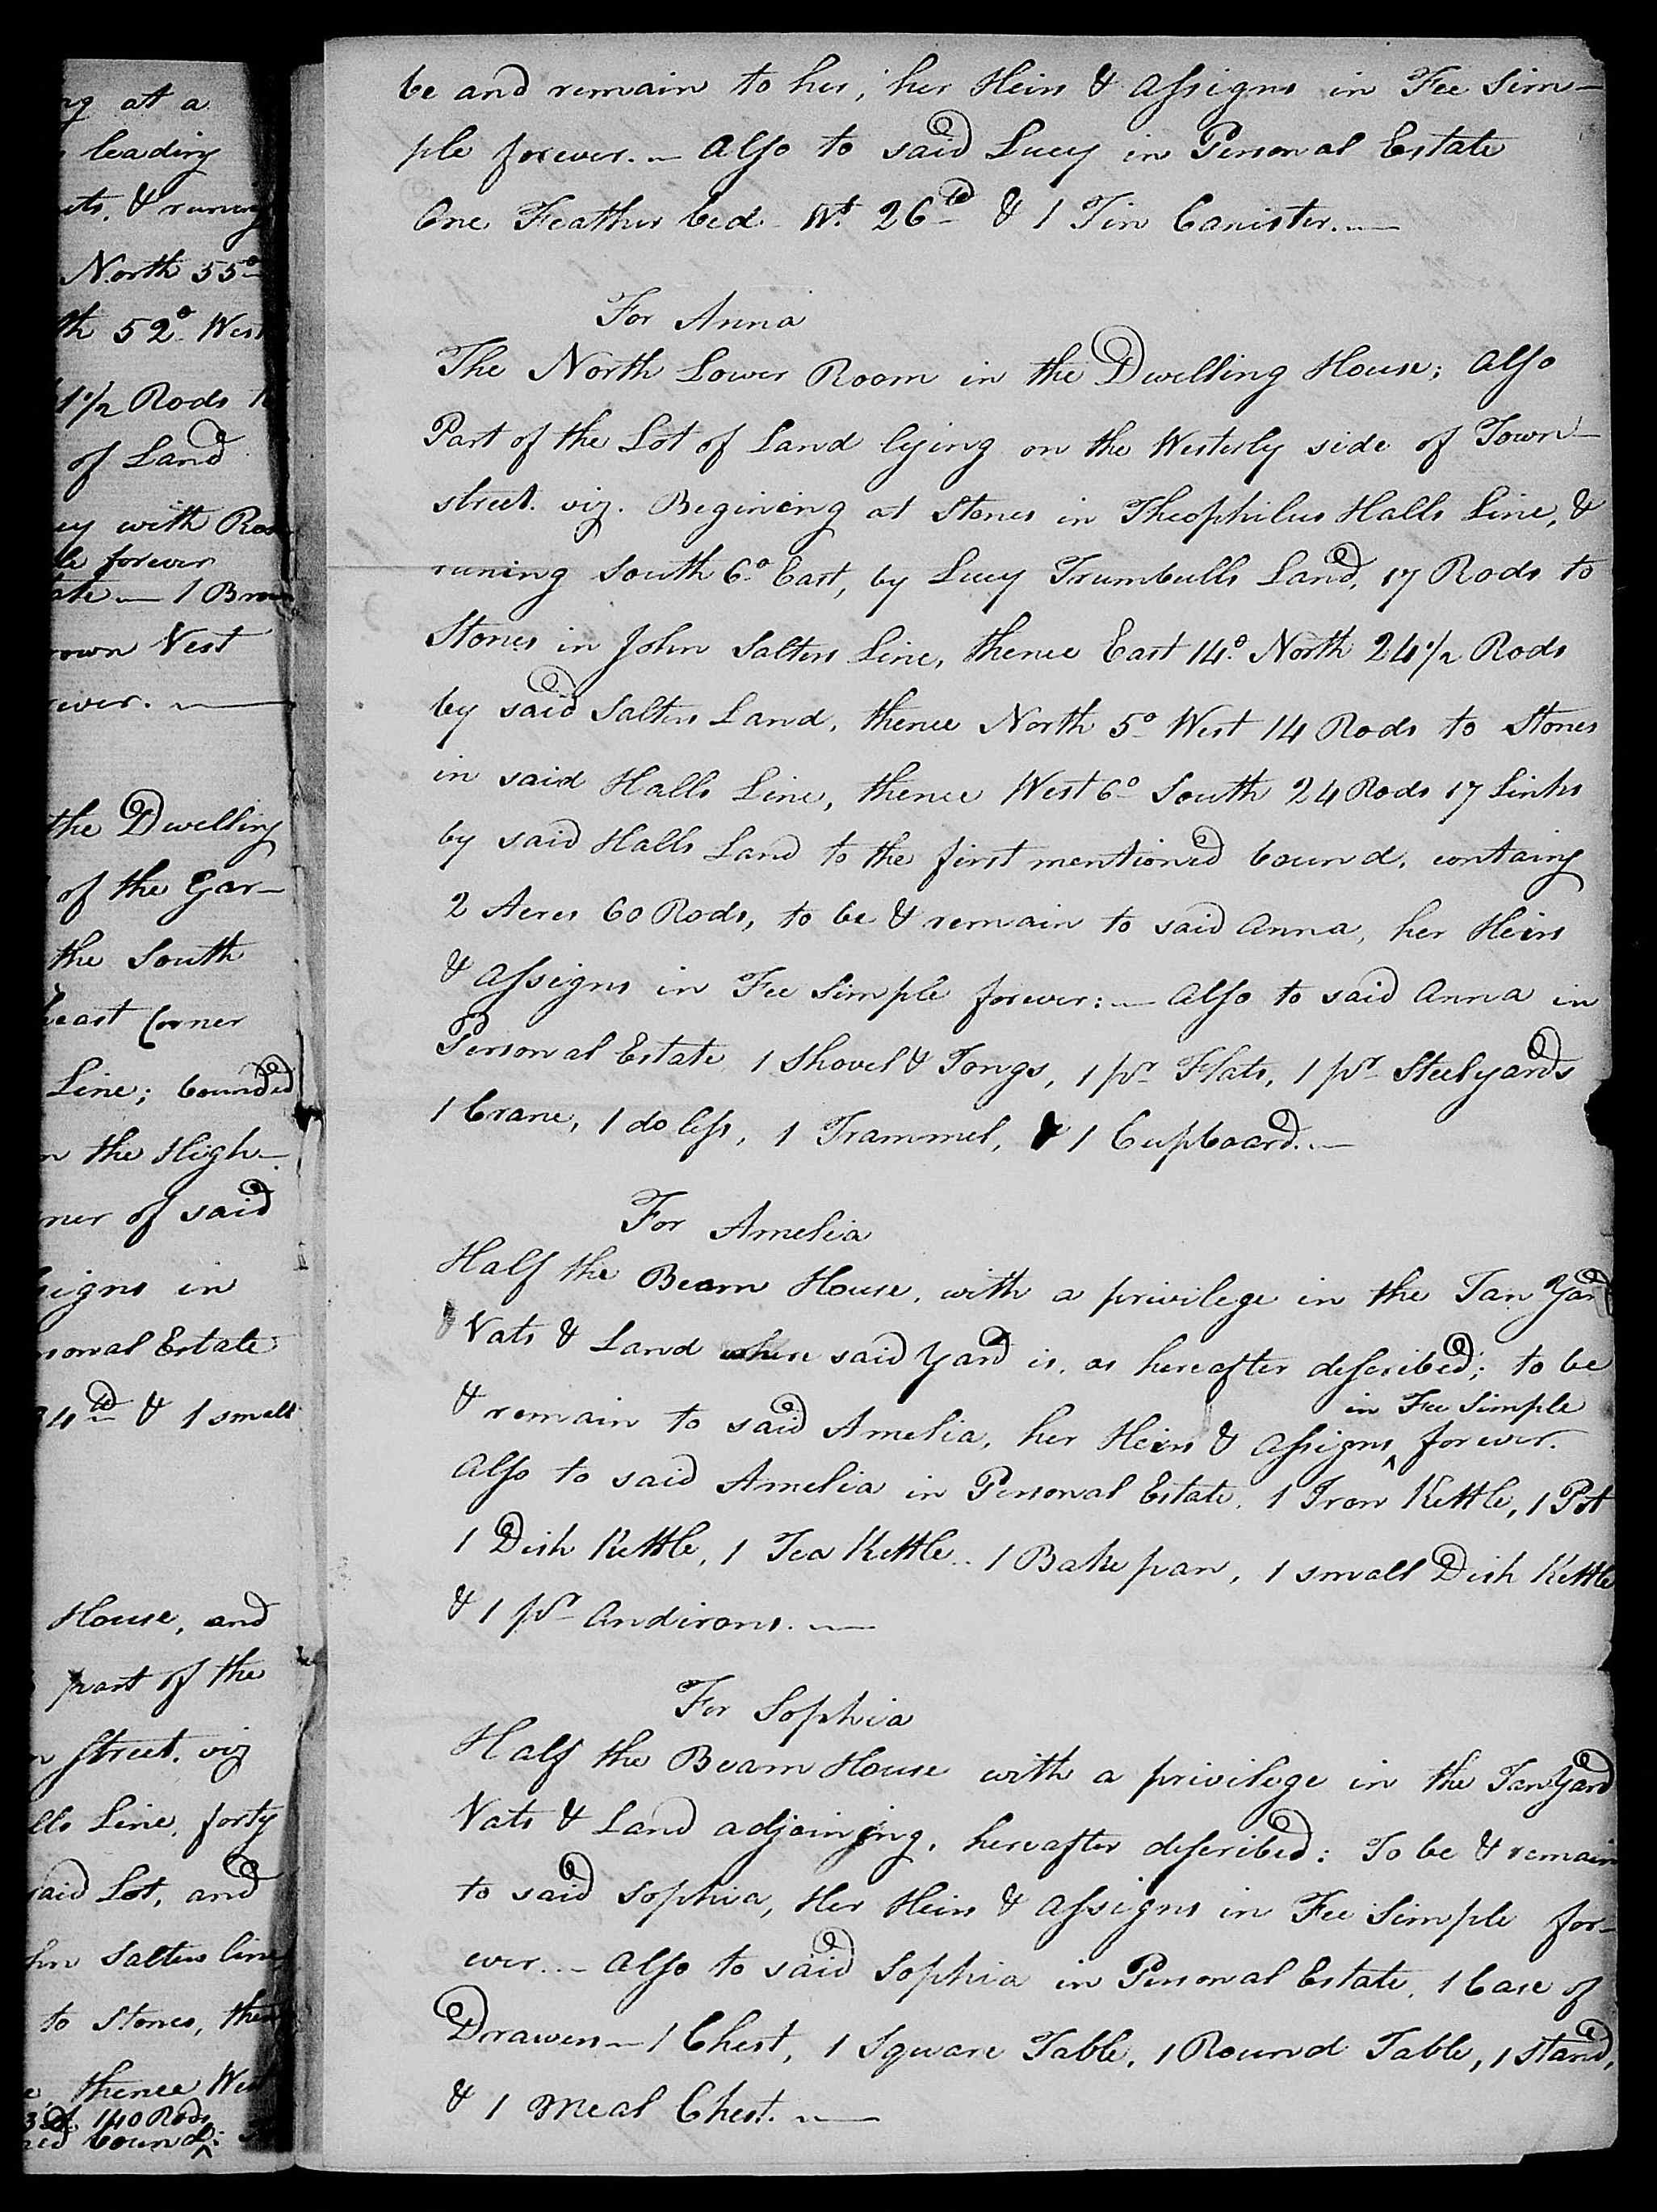 ng at a
leading
ets, & runing
North 55°
th 52° West
1½ Rods to
of Land
ey with
le forever
ate — 1 Brown
rown Vest
ever. —
the Dwelling
of the Gar-
the South
east Corner
Line; bounded
n the High-
ner of said
signs in
rsonal Estate
& 1 small
House, and
part of the
n Street. viz
lls Line, forty
said Lot, and
hn Salters line
to Stones, thence
thence West
140 Rods
bound:
be and remain to her, her Heirs & Assigns in Fee Sim-
ple forever. — Also to said Lucy in Personal Estate
One Feather bed Wt. 26lb & 1 Tin Canister. —
For Anna
The North Lower Room in the Dwelling House; Also
Part of the Lot of Land lying on the Westerly side of Town-
street. viz. Begining at Stones in Theophilus Halls Line, &
runing South 6° East, by Lucy Trumbulls Land, 17 Rods to
Stones in John Salters Line, thence East 14° North 24½ Rods
by said Salters Land, thence North 5° West 14 Rods to Stones
in said Halls Line, thence West 6° South 24 Rods 17 Links
by said Halls Land to the first mentioned bound, containg
2 Acres 60 Rods, to be & remain to said Anna, her Heirs
& Assigns in Fee Simple forever: — Also to said Anna in
Personal Estate 1 Shovel & Tongs, 1 pr Flats, 1 pr Steelyards
1 Crane, 1 do less, 1 Trammel, & 1 Cupboard. —
For Amelia
Half the Beam House, with a privilege in the Tan Yard
Vats & Land where said Yard is, as hereafter described; to be
in Fee Simple
& remain to said Amelia, her Heirs & Assigns ^ forever.
Also to said Amelia in Personal Estate, 1 Iron Kettle, 1 Pot
1 Dish Kettle, 1 Tea Kettle. 1 Bake pan, 1 small Dish Kettle
& 1 pr Andirons. —
For Sophia
Half the Beam House with a privilege in the Tan Yard
Vats & Land adjoining, hereafter described: To be & remain
to said Sophia, Her Heirs & Assigns in Fee Simple for-
ever. — Also to said Sophia in Personal Estate, 1 Case of
Drawers — 1 Chest, 1 Square Table, 1 Round Table, 1 Stand,
& 1 Meal Chest. —